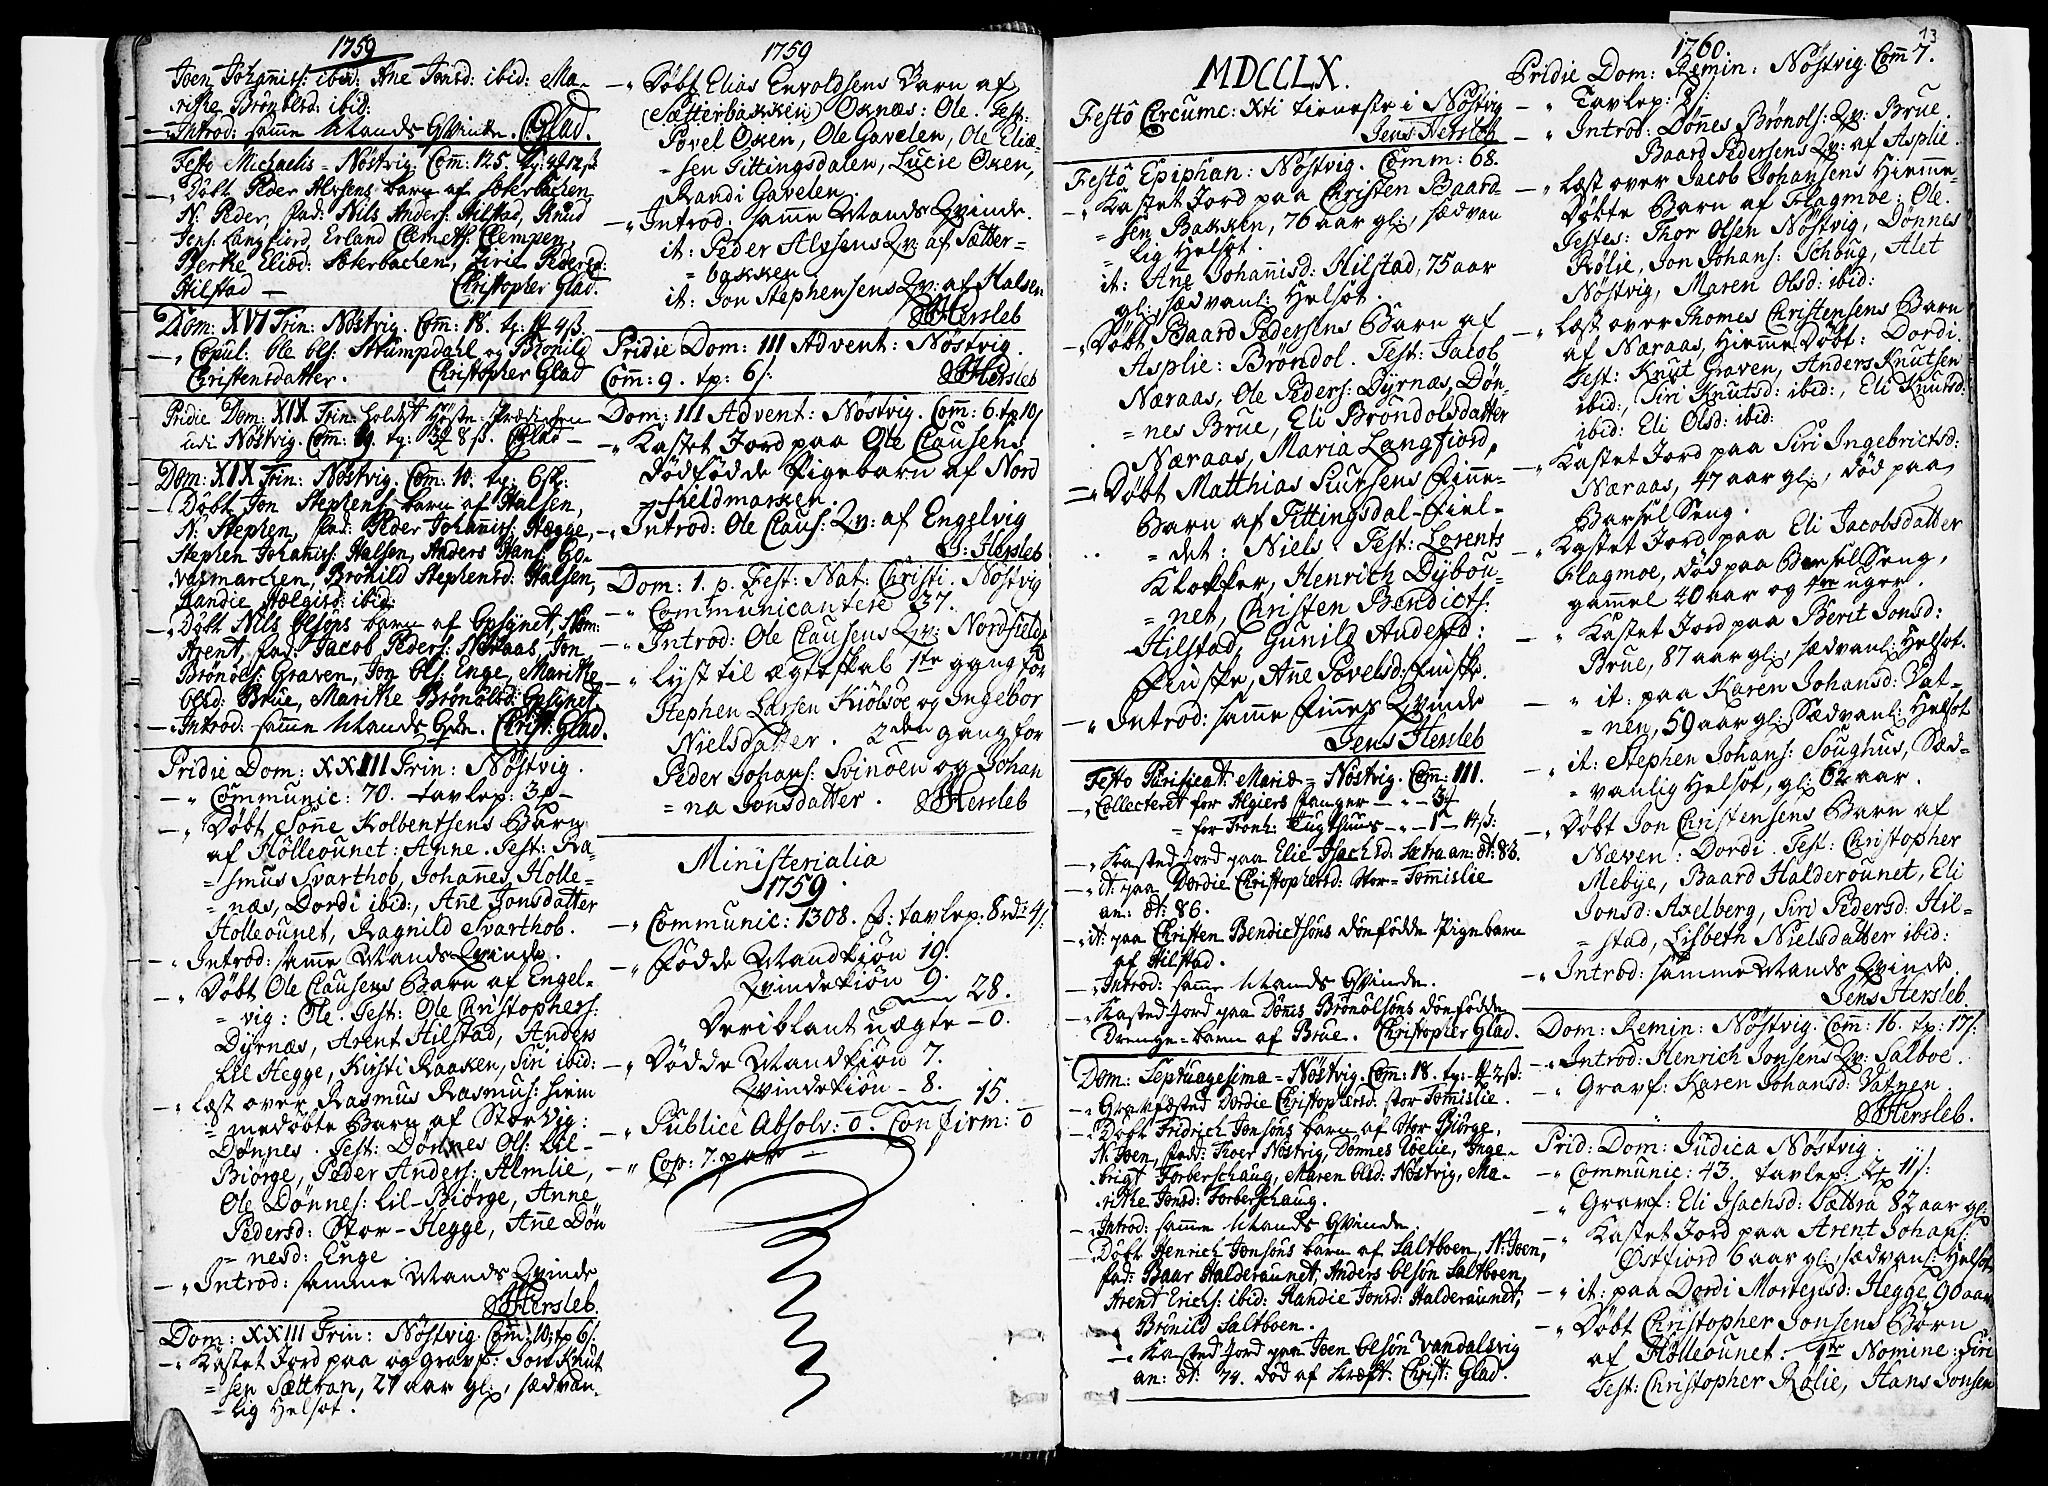 1759
Joen Johanniss: ibid: Ane Jonsd: ibid: Ma-
rithe Brønelsd: ibid:
Introd: samme Mands Qvinde. C: Glad.
Festo Michaelis - Nøstvig. Com: 125.
Døbt Peder Alvsens barn af Sæterbachen,
N: Peder, fad: Nils Anders: Hilstad, Knud
Jens: Langfiord, Erland Clemets: Clempen,
Berthe Eliæd: Sæterbachen, Siri Pedersd:
Hilstad — Christopher Glad.
Dom: XVI Trin: Nøstvig. Com: 18. tp: 4ß.
Copul: Ole Ols: Strumpdahl og Brønild
Christensdatter. Christopher Glad
Pridie Dom: XIX Trin: holdet Høste-Prædiken
udi Nøstvig. Com: 19. tp: 8ß. C: Glad —
Dom: XIX Trin: Nøstvig. Com: 10. tp: 6sk:
Døbt Jon Stephens: barn af Halsen,
N: Stephen, fad: Peder Johanniss: Hægge,
Stephen Johanniss: Halsen, Anders Hans:
marchen, Brønild Stephensd: Halsen,
Randie Helgisd: ibid:
Døbt Nils Olsøns barn af Opsynet, Nom:
Arent, fad: Jacob Peders: Næraas, Jon
Brønols: Graven, Jon Ols: Enge, Marithe
Olsd: Brue, Marithe Brønolsd: Opsynet
Introd: samme Mands Qvde. Christ: Glad.
Pridie Dom: XXIII Trin: Nøstvig.
Communic: 70. tavlep: 3ß —
Døbt Sønne Kolbentsens Barn
af Hølleounet: Anne. Test: Ra-
= smus Svarthob, Johannes Holle-
= næs, Dordi ibid:, Anne Jonsdatter
Holleounet, Ragnild Svarthob.
Introd: samme Mands Qvinde.
Døbt Ole Clausens Barn af Engel-
= vig: Ole. Test: Ole Christophers:
Dyrnæs, Arent Hilstad, Anders
Lil Hegge, Kirsti Raaken, Siri ibid:
Læst over Rasmus Rasmus: hiem
= medøbte Barn af Storvig:
Dønnes. Test: Dønnes Ols: Lil-
Biørge, Peder Anders: Almlie,
Ole Dønnes: Lil-Biørge, Anne
Pedersd: Stor-Hegge, Ane Døn
= nesd: Enge
Introd: samme Mands Qvinde
JHersleb.
Dom: XXIII Trin: Nøstvig. Com: 10. tp 6ß.
Kastet Jord paa og Gravf: Jon Knut
= sen Sættran, 27 aar gl:, sædvan-
= lig Helsot.
1759
Døbt Elias Envoldsens Barn af
(Sætterbakken) Oxnæs: Ole. Test:
Povel Oxen, Ole Gavelen, Ole Eliæ-
= sen Tittingsdalen, Lucie Oxen,
Randi Gavelen.
Introd: samme Mands Qvinde.
it: Peder Alvsens Qv: af Sætter-
= bakken
it: Jon Stephensens Qv: af Halsen
JHersleb
Pridie Dom: III Advent: Nøstvig.
Com: 9. tp: 6/: JHersleb
Dom: III Advent: Nøstvig. Com: 6. tp 10/
Kastet Jord paa Ole Clausens
dødfødde Pigebarn af Nord
Fieldmarken.
Introd: Ole Claus: Qv: af Engelvig
J: Hersleb
Dom: 1. p. Fest: Nat: Christi. Nøstvig
Communicantere 37.
Introd: Ole Clausens Qv: Nordfield
Lyst til ægteskab 1ste gang for
Stephen Larsen Kiølsøe og Ingebor
Nielsdatter. 2den gang for
Peder Johans: Svinøen og Johan
= na Jonsdatter. JHersleb
Ministerialia
1759.
Communic: 1308. J: tavlep: 8 rd 4/:
Fødde Mandkiøn 19.
Qvindekiøn 9.
28.
Deriblant uægte — 0.
Dødde Mandkiøn 7.
Qvindekiøn — 8. 15.
Publice Absolv: 0. Confirm: 0
Cop: 7. par —
MDCCLX.
Festô Circumc: Xti tieneste i Nøstvig
Jens Hersleb
Festô Epiphan: Nøstvig. Comm: 68.
Kastet Jord paa Christen Baard-
= sen Bakken, 76 aar gl:, sædvan
= lig Helsot.
it: Ane Johannisd: Hilstad, 75 aar
gl:, sædvanl: Helsot.
Døbt Baard Pedersens Barn af
Asplie: Brøndol. Test: Jacob
Næraas, Ole Peders: Dyrnæs, Døn-
= nes Brue, Eli Brøndolsdatter
Næraas, Maria Langfiord,
Døbt Matthias Siursens Finne-
Barn af Tittingsdal-Fiel-
= det: Niels. Test: Lorents
Klokker, Henrich Dybou-
= net, Christen Bendicts:
Hilstad, Gunild Andersd:
Finske, Ane Povelsd: Finske.
Introd: samme Finnes Qvinde
Jens Hersleb
Festo Purificat: Mariæ = Nøstvig. Com: 111.
Collecteret for Algiers Fanger
= for Tronh: Tugthuus — 1 — 14ß:
Kasted Jord paa Elie Isachsd: Sætra an: æt: 83.
it: paa Dordie Christophersd: Stor-Tommislie
an: æt: 86.
it: paa Christen Bendictsøns dødfødde Pigebarn
af Hilstad.
Introd: samme Mands Qvinde.
Kasted Jord paa Dønnes Brønolsøns dødfødde
Drenge-barn af Brue. Christopher Glad.
Dom: Septuagesima = Nøstvig. Com: 18. tp: 2ß:
Gravfæsted Dordie Christophersd: Stor-Tomislie.
Døbt Fridrich Jonsøns barn af Stor Biørge,
N: Joen, fad: Thoer Nøstvig, Dønnes Røelie, Inge-
brigt Forberschaug, Maren Olsd: Nøstvig, Ma-
rithe Jonsd: Forberschaug.
Introd: samme Mands Qvinde.
Døbt Henrich Jonsøns barn af Saltboen, N: Joen,
fad: Baar Halderaunet, Anders Olsøn Saltboen,
Arent Erichs: ibid: Randie Jonsd: Halderaunet,
Brønild Saltboen.
Kasted Jord paa Joen Olsøn Vandalsvig
an: æt: 74. død af Kræft. Christ: Glad.
13
1760.
Pridie Dom: Remin: Nøstvig. Com 7.
Tavlep: 2/:
Introd: Dønnes Brønols: Qv: Brue.
Baard Pedersens Qv: af Asplie.
Læst over Jacob Johansens Hiemme-
døbte Barn af Flagmoe: Ole.
Testes: Thor Olsen Nøstvig, Dønnes
Rølie, Jon Johans: Schoug, Alet
Nøstvig, Maren Olsd: ibid:
Læst over Thomes Christensens Barn
af Næraas, Hiemmedøbt: Dordi.
Test: Knut Graven, Anders Knutsen
ibid:, Siri Knutsd: ibid:, Eli Knutsd:
ibid: Eli Olsd: ibid:
Kastet Jord paa Siri Ingebrictsd:
Næraas, 47 aar gl:, død paa
Barsel Seng.
Kastet Jord paa Eli Jacobsdatter
Flagmoe, død paa Barsel Seng,
gammel 40 aar og tre uger.
Kastet Jord paa Berit Jonsd:
Brue, 87 aar gl:, sædvanl: Helsot.
it: paa Karen Johansd: Vat-
= nen, 59 aar gl: Sædvanl: Helsot
it: Stephen Johans: Soughus, Sæd-
= vanlig Helsot, gl: 62 aar.
Døbt Jon Christensens Barn af
Næven: Dordi. Test: Christopher
Mebye, Baard Halderounet, Eli
Jonsd: Axelberg, Siri Pedersd: Hil-
= stad, Lisbeth Nielsdatter ibid:
Introd: samme Mands Qvinde
Jens Hersleb.
Dom: Remin: Nøstvig. Com: 16. tp: 17/:
Introd: Henrich Jonsens Qv: Salboe.
Gravf: Karen Johansd: Vatnen.
JHersleb.
Prid: Dom: Judica Nøstvig.
Communic: 43. tavlep: 11/:
Gravf: Eli Isachsd: Sættra 82 aar gl:
Kastet Jord paa Arent Johans:
Østfiord 6 aar gl:, sædvanl: Helsot,
it: paa Dordi Mortensd: Hegge, 90 aar
Døbt Christopher Jonsens Børn
af Hølleounet. 1te Nomine: Siri
Test: Christopher Rølie, Hans Jonsen